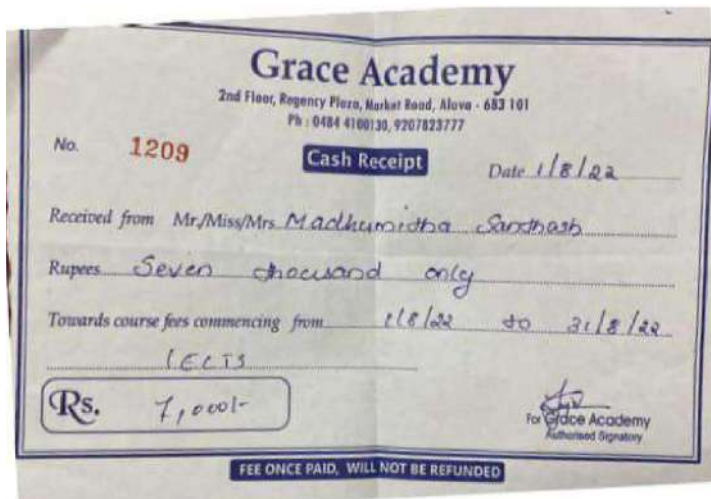 Grace Academy
2nd Floor, Regency Plaza, Market Road, Aluva - 683 101
Ph : 0484 4100130, 9207823777
No. 1209
Cash Receipt
Date 1/8/22
Received from Mr./Miss/Mrs Madhumidha Santhosh
Rupees Seven thousand only
Towards course fees commencing from 1/8/22 to 31/8/22
IELTS
Rs. 7,000/-
For Grace Academy
Authorised Signatory
FEE ONCE PAID, WILL NOT BE REFUNDED